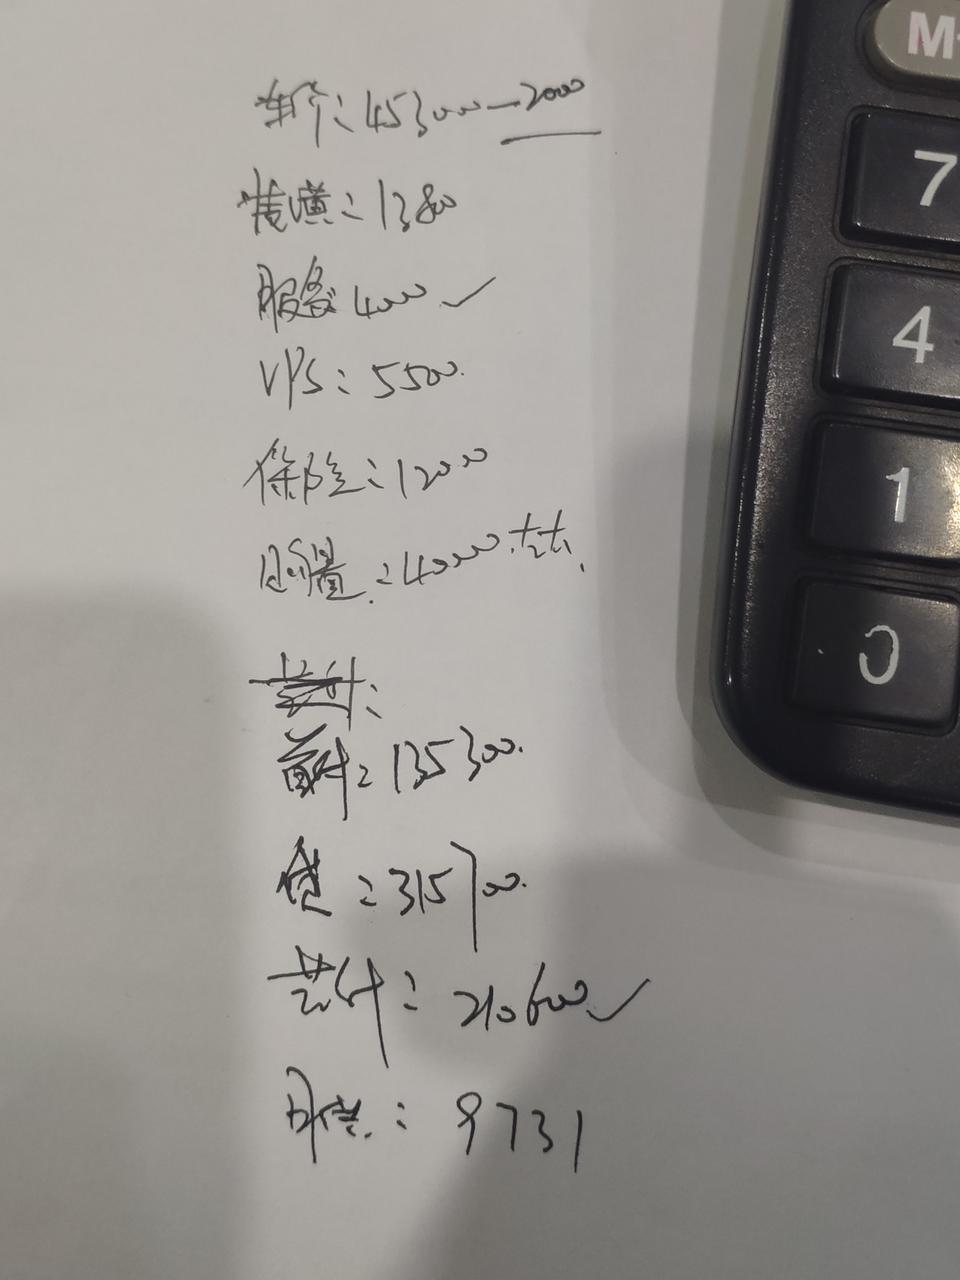 车价：453000—2000
装潢：13800
服务4000✓
VPS：5500.
保险：12000
购置：40000.左右.
首付：135300.
贷：315700.
共付：210600✓
月供：9731
M
7
4
1
0